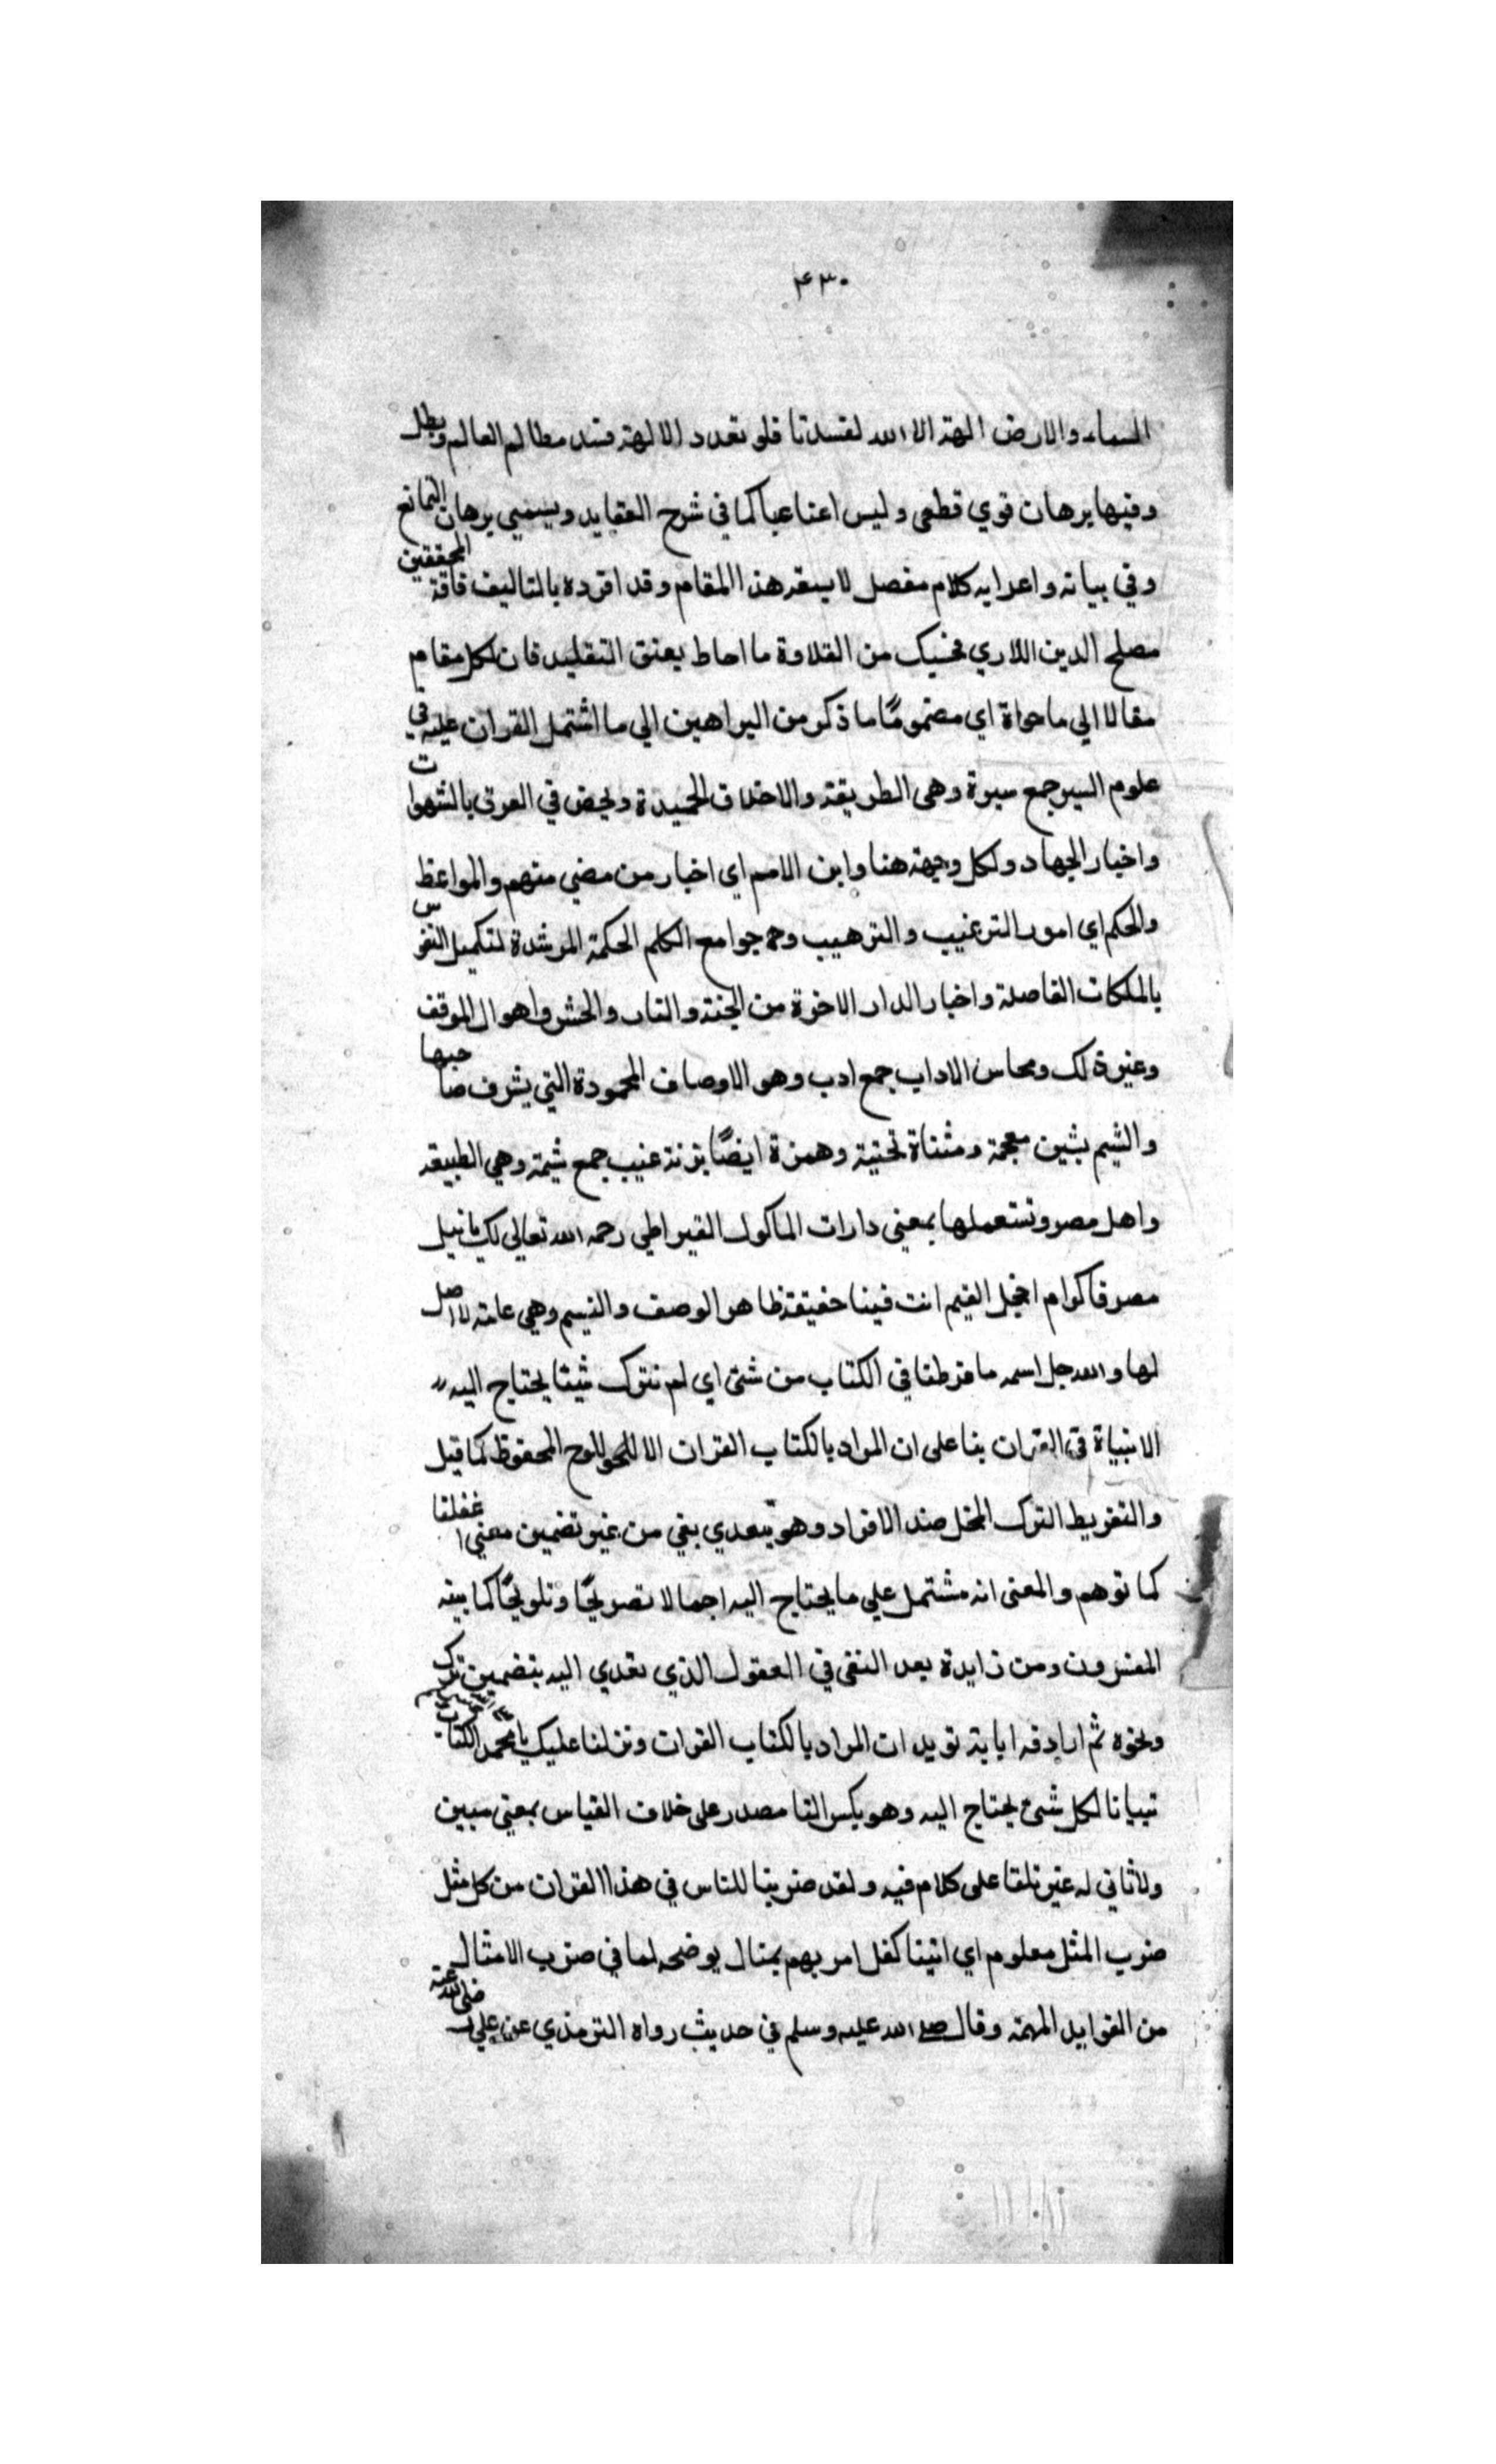 ۴۳۰
السماء والارض الهة الا الله لفسدتا فلو تعدد الالهة فسد مطالم العالم وبطل
وفيها برهان قوي قطعى وليس اعناعيا كما في شرح العقايد ويسمي برهان التمانع
وفي بيانه واعرابه كلام مفصل لا يسعه هذا المقام وقد افرده بالتاليف المحققين
مصلح الدين اللاري فحسبك من القلادة ما احاط بعنق التقليد فان لكل مقام
مقالا الي ما حواة اي مضمومًا ما ذكر من البراهين الي ما اشتمل القران عليه في
علوم السير جمع سيرة وهى الطريقة والاخلاق الحميدة ويخص في العرق بالشهوات
واخبار الجهاد ولكل وجهة هنا واين الامم اي اخبار من مضي منهم والمواعظ
والحكم اي امور الترغيب والترهيب وجوامع الكلم الحكمة المرشدة لتكميل النفوس
بالملكات الفاصلة واخبار الدار الاخرة من الجنة والنار والحشر واهوال الموقف
وغير ذلك ومحاسن الاداب جمع ادب وهو الاوصاف المحمودة التي يشرف صاحبها
والشيم بشين معجمة ومثناة تحتية وهمزة ايضًا بزنة عنب جمع شيمة وهي الطبيعة
واهل مصر وتستعملها بمعنى دارات الماكول القيراطي رحمه الله تعالي لك يا نيل
مصر فاكرام اخجل الغيم انت فينا حقيقة ظاهر الوصف والشيم وهي عامة لا اصل
لها والله جل اسمه ما فرطنا في الكتاب من شئ اي لم نترك شيئا يحتاج اليه
الانبياة في القران بنا على ان المراد بالكتاب القران الا اللوح المحفوظ كما قيل
والتفريط الترك المخل ضد الافراد وهو يتعدي بفي من غير تضمين معني اغفلنا
كما توهم والمعنى انه مشتمل علي ما يحتاج اليه اجمالا تصريحًا وتلويحًا كما بينه
المفسرون ومن زايدة بعد النفى في العقول الذي تعدي اليه بتضمين ترك
ونحوه ثم اراد فه اباية تويد ان المراد بالكتاب القران ونزلنا عليك يا محمد الكتاب
تبيانا لكل شئ يحتاج اليه وهو بكسر التا مصدر على خلاف القياس بمعنى مبين
ولا ثاني له غير تلقا على كلام فيه ولقد ضربنا للناس في هذا القران من كل مثل
ضرب المثل معلوم اي اتينا كفل امر بهم بمثال يوضحه لما في ضرب الامثال
من الفوايد المهمة وقال صلى الله عليه وسلم في حديث رواه الترمذي عن علي رضي الله عنه